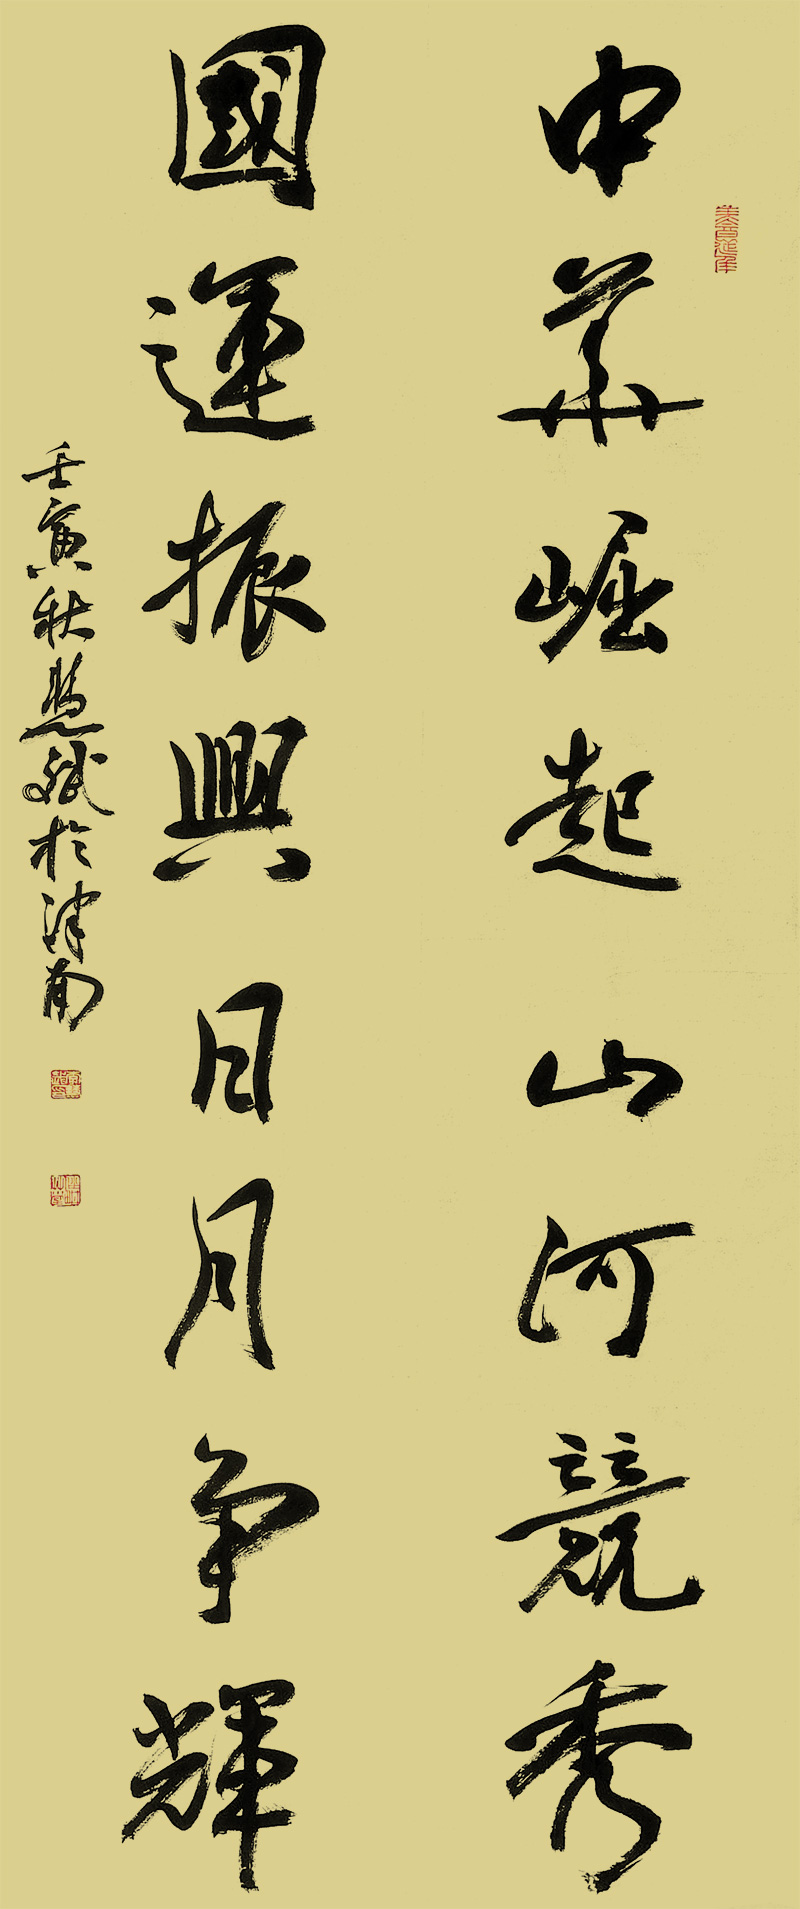 中華崛起山河競秀
國運振興日月争輝
壬寅秋慧斌於津南